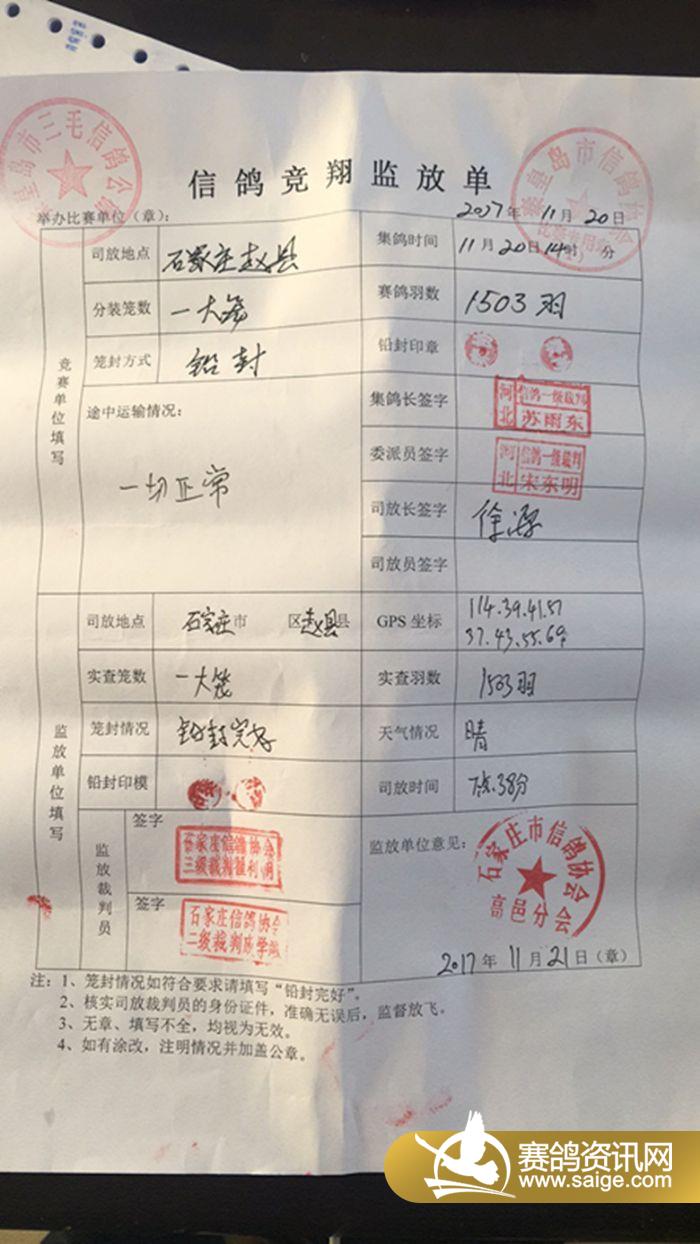 秦皇岛市三毛信鸽公棚
秦皇岛市信鸽协会
比赛专用章
信鸽竞翔监放单
举办比赛单位（章）：
2017年11月20日
竞赛单位填写
司放地点 石家庄赵县 集鸽时间 11月20日14时 分
分装笼数 一大笼 赛鸽羽数 1503羽
笼封方式 铅封 铅封印章
途中运输情况： 集鸽长签字 河北 信鸽一级裁判 苏雨东
一切正常 委派员签字 河北 信鸽一级裁判 宋东明
司放长签字 徐源
司放员签字
监放单位填写
司放地点 石家庄市 区赵县县 GPS 坐标 114.39.41.51
37.43.55.69
实查笼数 一大笼 实查羽数 1503羽
笼封情况 铅封完好 天气情况 晴
铅封印模 司放时间 7点38分
监放裁判员
签字
石家庄信鸽协会
三级裁判
签字
石家庄信鸽协会
二级裁判
监放单位意见：
石家庄市信鸽协会
高邑分会
2017年11月21日（章）
注：1、笼封情况如符合要求请填写“铅封完好”。
2、核实司放裁判员的身份证件，准确无误后，监督放飞。
3、无章、填写不全，均视为无效。
4、如有涂改，注明情况并加盖公章。
赛鸽资讯网
www.saige.com